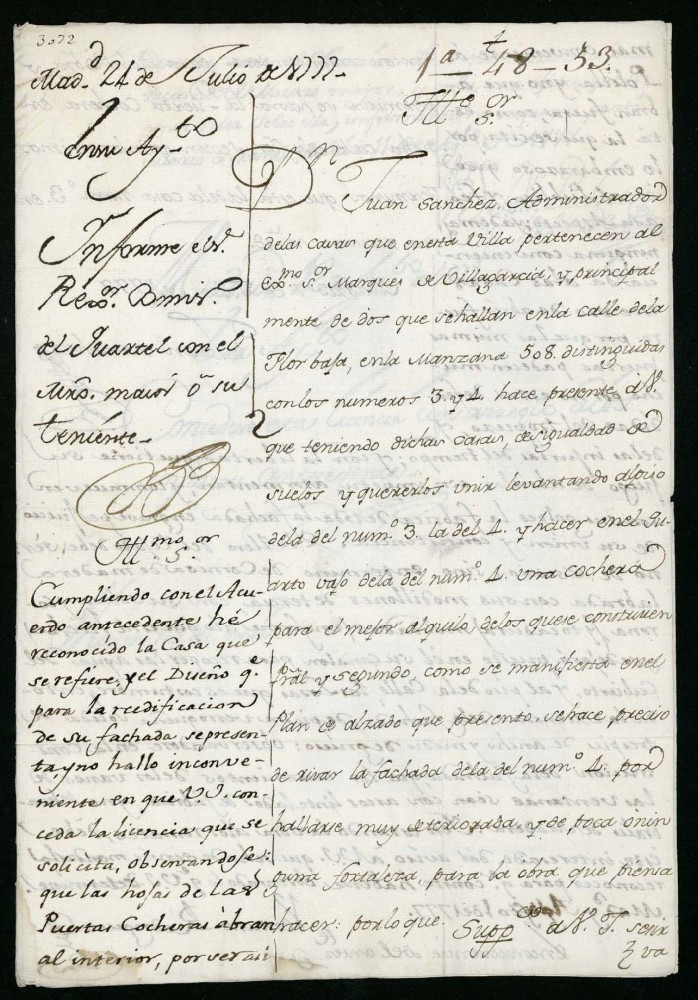 3072
Mad.d 24 de Julio de 1777-
1a - 48 - 53.
En su Ay.to
Informe el S.r
Rex.or Comis.o
del Quartel con el
Mro. maior o su
teniente-
Ill.mo S.or
Cumpliendo con el Acu-
erdo antecedente hé
reconocido la Casa que
se refiere, y el Diseño q.e
para la reedificacion
de su fachada se presen-
ta y no hallo inconve-
niente en que V.I. con-
ceda la licencia que se
solicita, observandose:
que las hojas de las
Puertas Cocheras abran
al interior, por ver asi
Ill.e S.or
D.n Juan Sanchez, Administrador
de las casas que en esta Villa pertenecen al
exmo. s.or Marques de Villagarcia, y principal
mente de dos que se hallan en la calle de la
Flor baja, en la Manzana 508. distinguidas
con los numeros 3. y 4. hace presente a V.
que teniendo dichas casas, desigualdad de
suelos y quererlos unir levantando al piso
de la del num.o 3. la del 4. y hacer en el Qu-
arto vajo de la del num.o 4. una cochera
para el mejor alquilo, de los que se constituien
Pral. y segundo, como se manifiesta en el
Plan de alzado que presento, se hace preciso
derivar la fachada de la del num.o 4. por
hallarse muy deteriorada, y de poca o nin
guna fortaleza, para la obra que piensa
hacer: por lo que. Supp.co a V. I. se sir
va